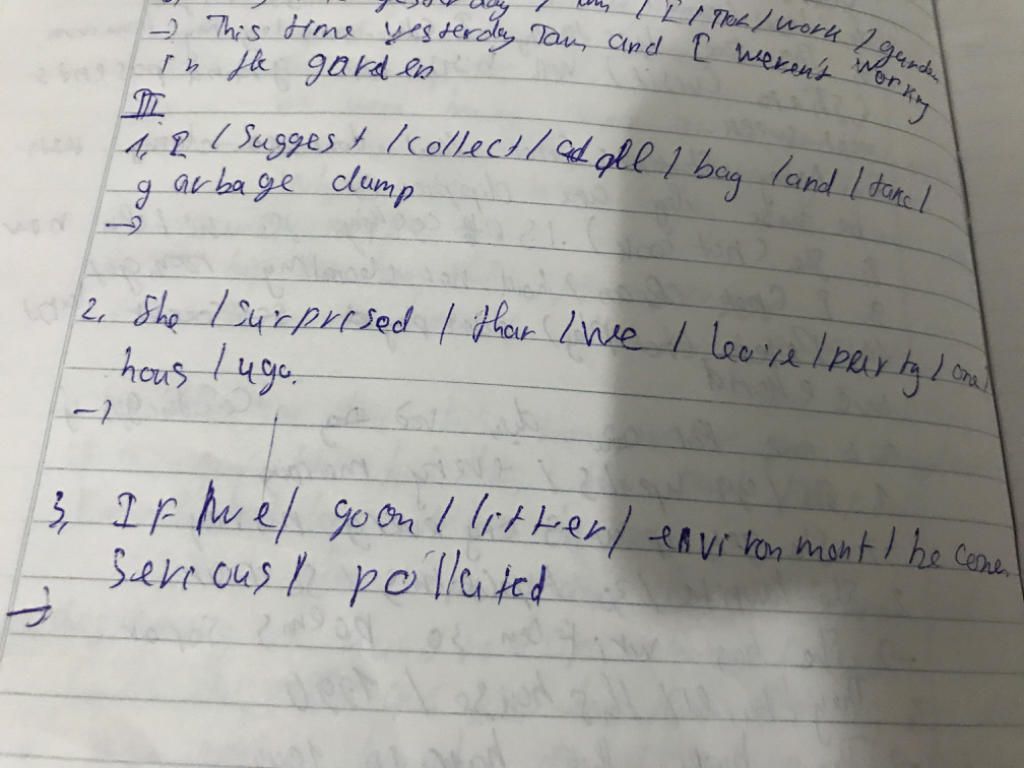 yesterday / / I / / work / garden
→ This time yesterday Tam and I weren't working
in the garden
III
1, I / Suggest / collect / all / bag / and / take /
garbage dump
→
2, She / surprised / that / we / leave / party / one /
hous / ago.
→
3, If / we / go on / litter / environment / be come
Serious / polluted
→